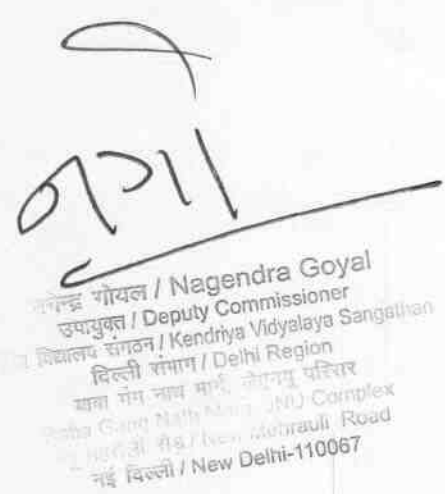 नगेन्द्र गोयल / Nagendra Goyal
उपायुक्त / Deputy Commissioner
विद्यालय संगठन / Kendriya Vidyalaya Sangathan
दिल्ली संभाग / Delhi Region
बाबा गंग नाथ मार्ग, जेएनयू परिसर
Baba Gang Nath Marg, JNU Complex
महरौली रोड / New Mehrauli Road
नई दिल्ली / New Delhi-110067